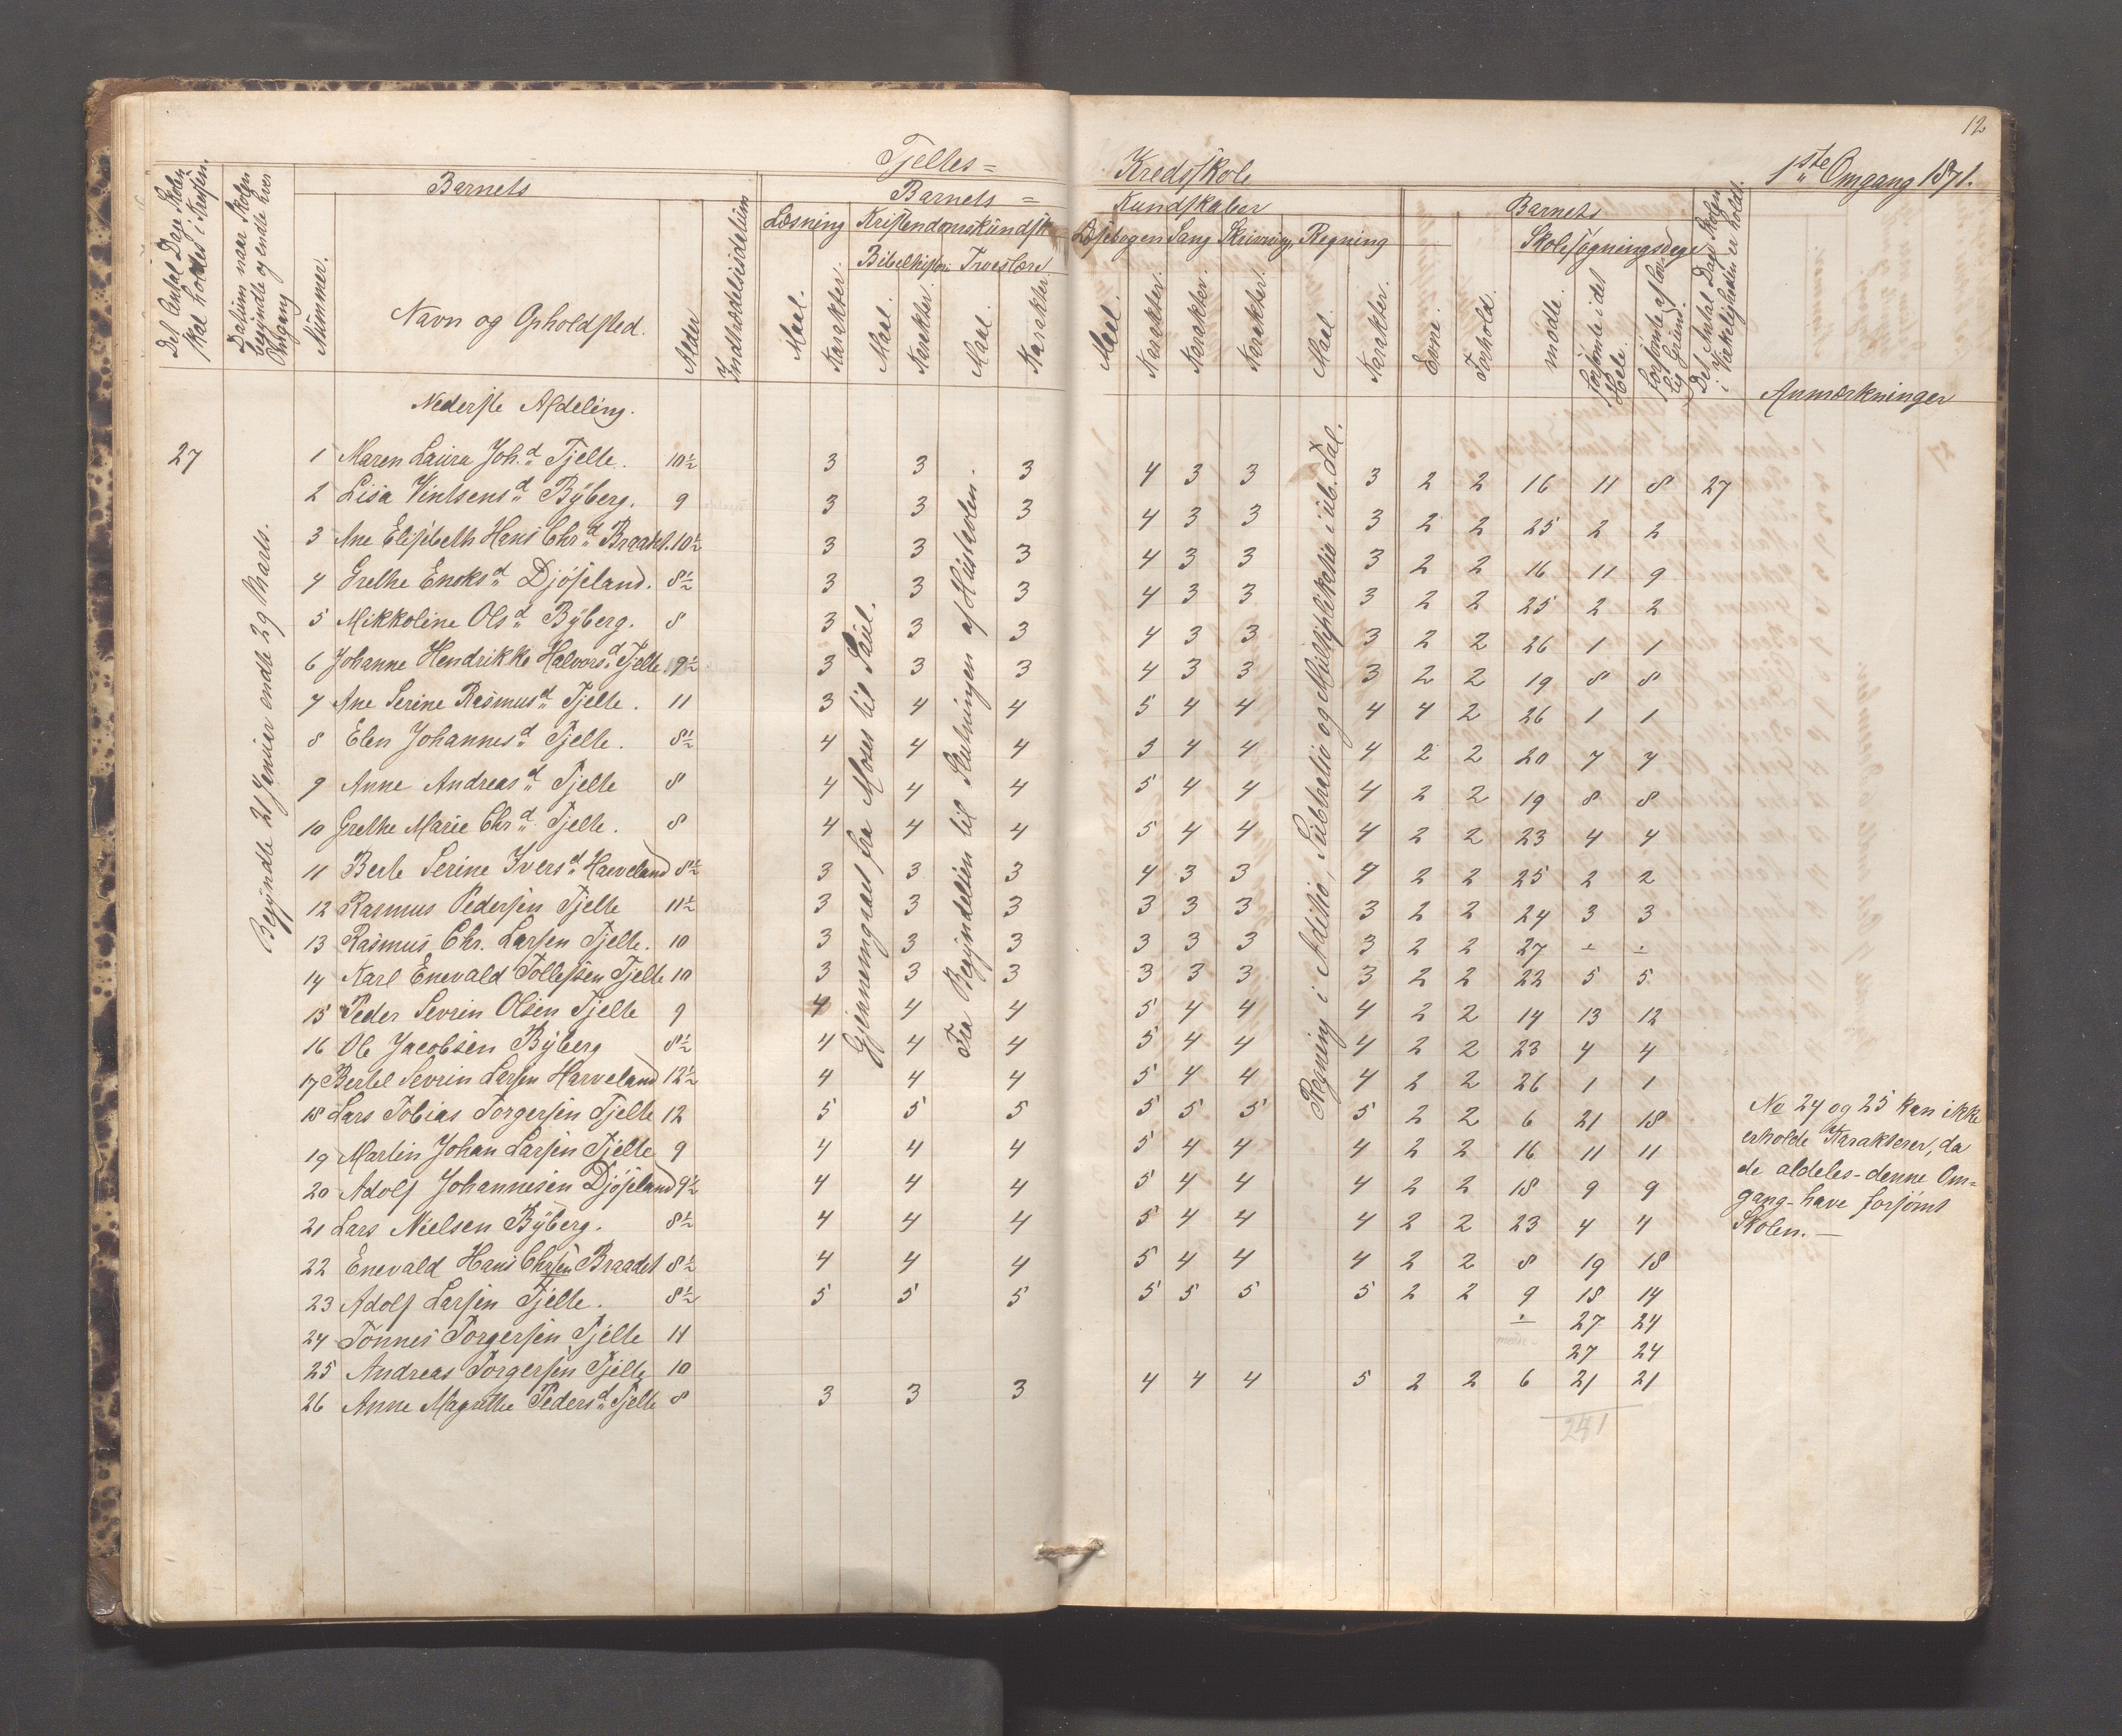 12
Tjeltes=
Kredsskole
1ste Omgang 1871.
Det Antal Dage Skolen skal holdes i Kredsen.
Datum naar Skolen begyndte og endte hver Omgang
Barnets
Nummer.
Navn og Opholdsted.
Alder
Indtrædelsesdatum
Barnets =
Læsning
Maal.
Karakter.
Kristendomskundsk
Bibelhistori
Maal.
Karakter.
Troeslære
Maal.
Karakter
Kundskaber
Læsebogen
Maal.
Karakter.
Sang
Karakter.
Skrivning
Karakter.
Regning
Maal.
Karakter.
Barnets
Evne.
Forhold.
Skolesøgningsdage
mødte.
forsømte i det Hele.
forsømte af lovlig Grund.
Det Antal Dage Skolen i Virkeligheden er holdt.
Anmærkninger
Nederste Afdeling.
27
Begyndte 21 Januar endte 29 Marts.
Gjennemgaaet fra Moses til Saul.
Fra Begyndelsen til Slutningen af Hustavlen.
Regning i Aditio, Subtratio og Multiplikatio i ub. Tal.
1 Maren Laura Joh.d Tjelte. 10½ 3 3 3 4 3 3 3 2 2 16 11 8 27
2 Lisa Vintsensd Byberg. 9 3 3 3 4 3 3 3 2 2 25 2 2
3 Ane Elisebeth Hans Chrd Braadet. 10½ 3 3 3 4 3 3 3 2 2 16 11 9
4 Grethe Enoksd Djøseland. 8½ 3 3 3 4 3 3 3 2 2 25 2 2
5 Mikkoline Olsd Byberg. 8 3 3 3 4 3 3 3 2 2 26 1 1
6 Johanne Hendrikke Halvorsd Tjelte 9½ 3 3 3 4 3 3 3 2 2 19 8 8
7 Ane Serine Rasmusd Tjelte. 11 3 4 4 5 4 4 4 4 2 26 1 1
8 Elen Johannesd Tjelte. 8½ 4 4 4 3 4 4 4 2 2 20 7 7
9 Anne Andreasd Tjelte 8 4 4 4 5 4 4 4 2 2 19 8 8
10 Grethe Marie Chrd Tjelte. 8 4 4 4 5 4 4 4 2 2 23 4 4
11 Berte Serine Iversd Haeveland 8½ 3 3 3 4 3 3 4 2 2 25 2 2
12 Rasmus Pedersen Tjelte 11½ 3 3 3 3 3 3 3 2 2 24 3 3
13 Rasmus Chr. Larsen Tjelte. 10 3 3 3 3 3 3 3 2 2 27 ÷ ÷
14 Karl Enevald Tollefsen Tjelte 10 3 3 3 3 3 3 3 2 2 22 5 5
15 Peder Sevrin Olsen Tjelte 9 4 4 4 5 4 4 4 2 2 14 13 12
16 Ole Jacobsen Byberg 8½ 4 4 4 5 4 4 4 2 2 23 4 4
17 Bertel Sevrin Larsen Harveland 12½ 4 4 4 5 4 4 4 2 2 26 1 1
18 Lars Tobias Torgersen Tjelte 12 5 5 5 5 5 5 5 2 2 6 21 18
19 Martin Johan Larsen Tjelte 9 4 4 4 5 4 4 4 2 2 16 11 11
20 Adolf Johannesen Djøseland 9½ 4 4 4 5 4 4 4 2 2 18 9 9
21 Lars Nielsen Byberg. 8½ 4 4 4 5 4 4 4 2 2 23 4 4
22 Enevald Hans Chrsen Braadet 8½ 4 4 4 5 4 4 4 2 2 8 19 18
23 Adolf Larsen Tjelte. 8½ 5 5 5 5 5 5 5 2 2 9 18 14
24 Tønnes Torgersen Tjelte 11 ÷ 27 24
25 Andreas Torgersen Tjelte 10 27 24
26 Anne Magrethe Pedersd Tjelte 8 3 3 3 4 4 4 5 2 2 6 21 21
241
No 24 og 25 kan ikke
erholde Karakterer, da
de aldeles-denne Om=
gang-have forsømt
Skolen.—